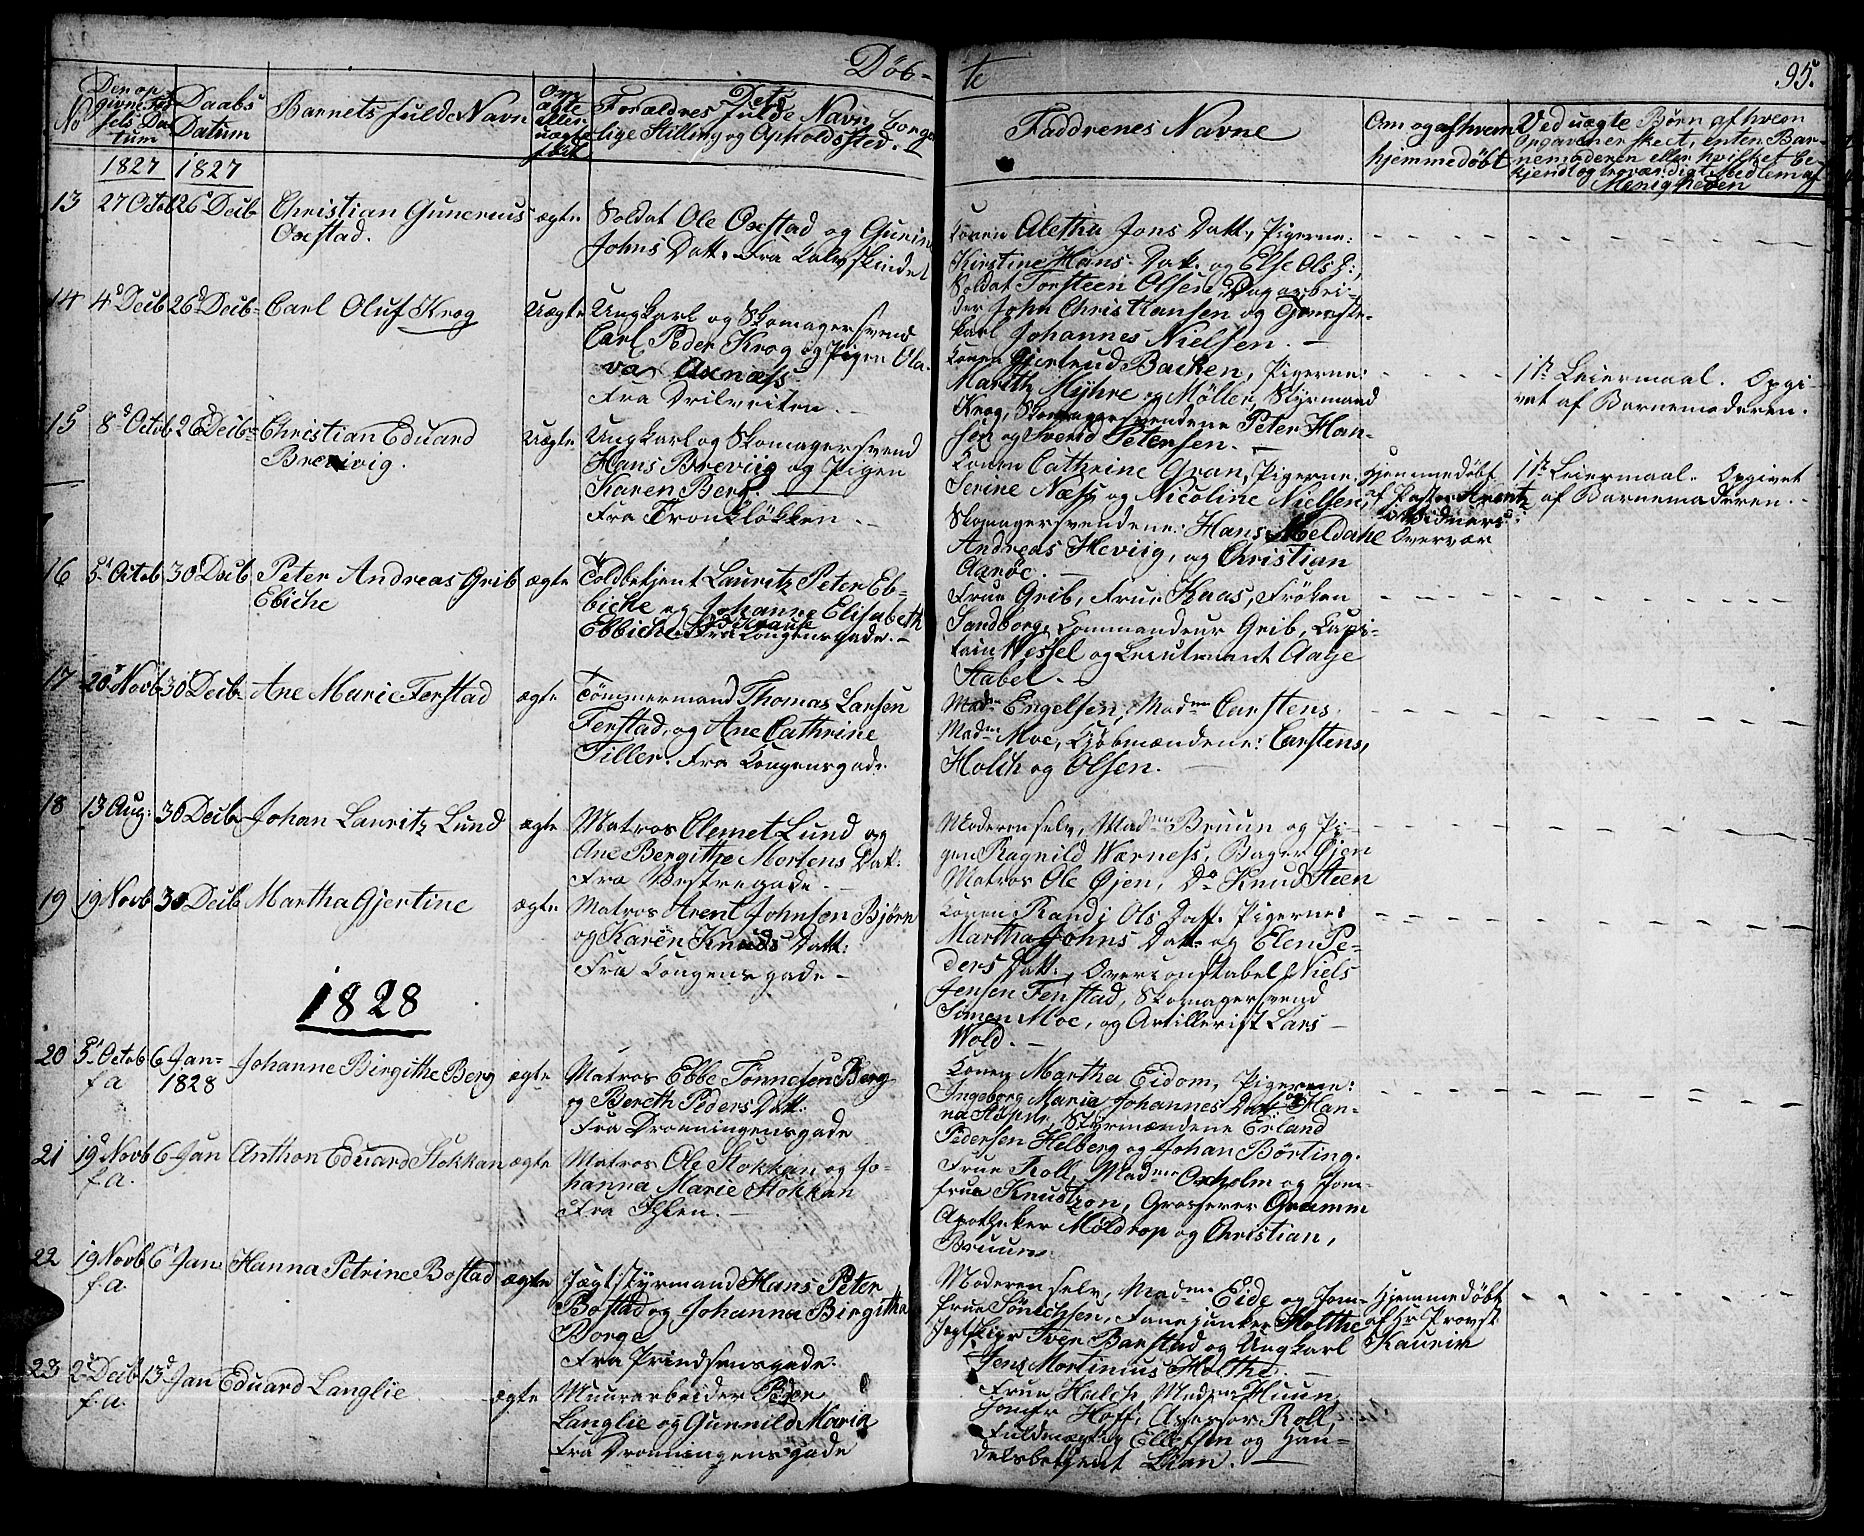 Døb-
te
95.
No
Den op-
givne Fød-
sels Da-
tum
Daabs
Datum
Barnets fulde Navn
Om
ægte
eller
uægte
født
Dets
Forældres fulde Navn, borger-
lige Stilling og Opholdssted.
Faddrenes Navne
Om og af hvem
hjemmedøbt
Ved uægte Børn af hvem
Opgaven er skeet, enten Bar-
nemoderen eller hvilket be-
kjendt og troværdigt Medlem af
Menigheden
1827 1827
13 27 Octob 26 Decb Christian Gunerius ægte Soldat Ole Oxstad og Gurine
Oxstad. Johns Datt. Fra Kalvskindet
Konen Aletha Jons Datt, Pigerne:
Kirstine Hans Datt. og Else Ols D:,
Soldat Torsteen Olsen, Dagarbei-
der John Christiansen og Tjeneste-
karl Johannes Nielsen. —
14 4d Decb 26d Decb Carl Oluf Krog Uægte Ungkarl og Skomagersvend
Carl Peder Krog og Pigen Ola-
va Axnæss
Fra Ilvveiten. —
Konen Gjertrud Backen, Pigerne:
Marith Myhre og Möller, Styrmand
Krog, Skomagersvendene Peter Han-
sen og Svend Petersen. —
1ste Leiermaal. Opgi-
vet af Barnemoderen.
15 8d Octob 26 Decb Christian Eduard Uægte Ungkarl og Skomagersvend
Brevig. Hans Breviig og Pigen
Karen Berg.
Fra Tronkløkken. —
Konen Cathrine Gran, Pigerne:
Serine Næss og Nicoline Nielsen,
Skomagersvendene: Hans Meldahl
Andreas Heviig, og Christian
Aaröe. —
Hjemmedøbt
af Pastor Krentz
i Vidners
Overvær
1ste Leiermaal. Opgivet
af Barnemoderen. —
16 5t Octob 30 Decb Peter Andreas Grib ægte Toldbetjent Lauritz Peter Eb-
Ebiche biche og Johanne Elisabeth
Ebbiche fød Krause Fra Kongensgade. —
Frue Grib, Frue Kaas, Frøken
Sandborg, Kommandeur Grib, Kapi-
tain Wessel og Lieutenant Aage
Stabel. —
17 20 Novb 30 Decb Ane Marie Ferstad ægte Tömmermand Thomas Larsen
Ferstad, og Ane Cathrine
Tiller. Fra Kongensgade
Madm Engelsen, Madm Carstens
Madm Moe, Kjøbmændene: Carstens,
Holch og Olsen. —
18 13 Aug: 30 Decb Johan Lauritz Lund ægte Matros Clemet Lund og
Ane Bergithe Mortens Dat:
Fra Vestregade. —
Moderen selv, Madm Bruun og Pi-
gen Ragnild Værness, Bager Øjen
Matros Ole Øjen, Do Knud Steen
19 19 Novb 30 Decb Martha Gjertine ægte Matros Arent Johnsen Bjørn
og Karen Knuds Datt:
Fra Kongensgade —
Konen Randi Ols Datt. Pigerne:
Martha Johns Datt og Elen Pe-
ders Datt:, Overconstabel Niels
Jensen Fenstad, Skomagersvend
Simen Moe, og Artillerist Lars
Wold. —
1828
20 5t Octob 6 Jan- Johanne Birgithe Berg ægte Matros Ebbe Tønnesen Berg
f.a 1828 og Bereth Peders Datt:
Fra Dronningensgade
Konen Martha Eidom, Pigerne:
Ingeborg Maria Johannes Datt og Han-
na Aspen, Styrmændene Erland
Pedersen Helberg og Johan Börting.
21 19d Novb 6 Jan Anthon Eduard Stokkan ægte Matros Ole Stokkan og Jo-
f.a. hanna Marie Stokkan
Fra Ihlen. —
Frue Roll, Madm Oxholm og Jom-
frue Knudtzon, Grosserer Gramm
Apotheker Möldrop og Christian,
Bruun.
22 19 Novb 6t Jan Hanna Petrine Bostad ægte Jægt-Styrmand Hans Peter
f.a. Bostad og Johanna Birgitha
Borge
Fra Prindsensgade.
Moderen selv, Madm Eide og Jom-
frue Sönichsen, Fanejunker Holthe
Jagtskipr Iver Barstad og Ungkarl
Jens Mortinius Holthe. —
Hjemmedøbt
af Hr Provst
Kaurin
23 2d Decb 13d Jan Eduard Langlie ægte Muurarbeider Peder
f.a. Langlie og Gunnild Maria
Fra Dronningensgade
Frue Halch, Madm Huun,
Jomfr Hoff, Assessor Roll,
Fuldmægtig Ellefsen og Han-
delsbetjent Lian. —